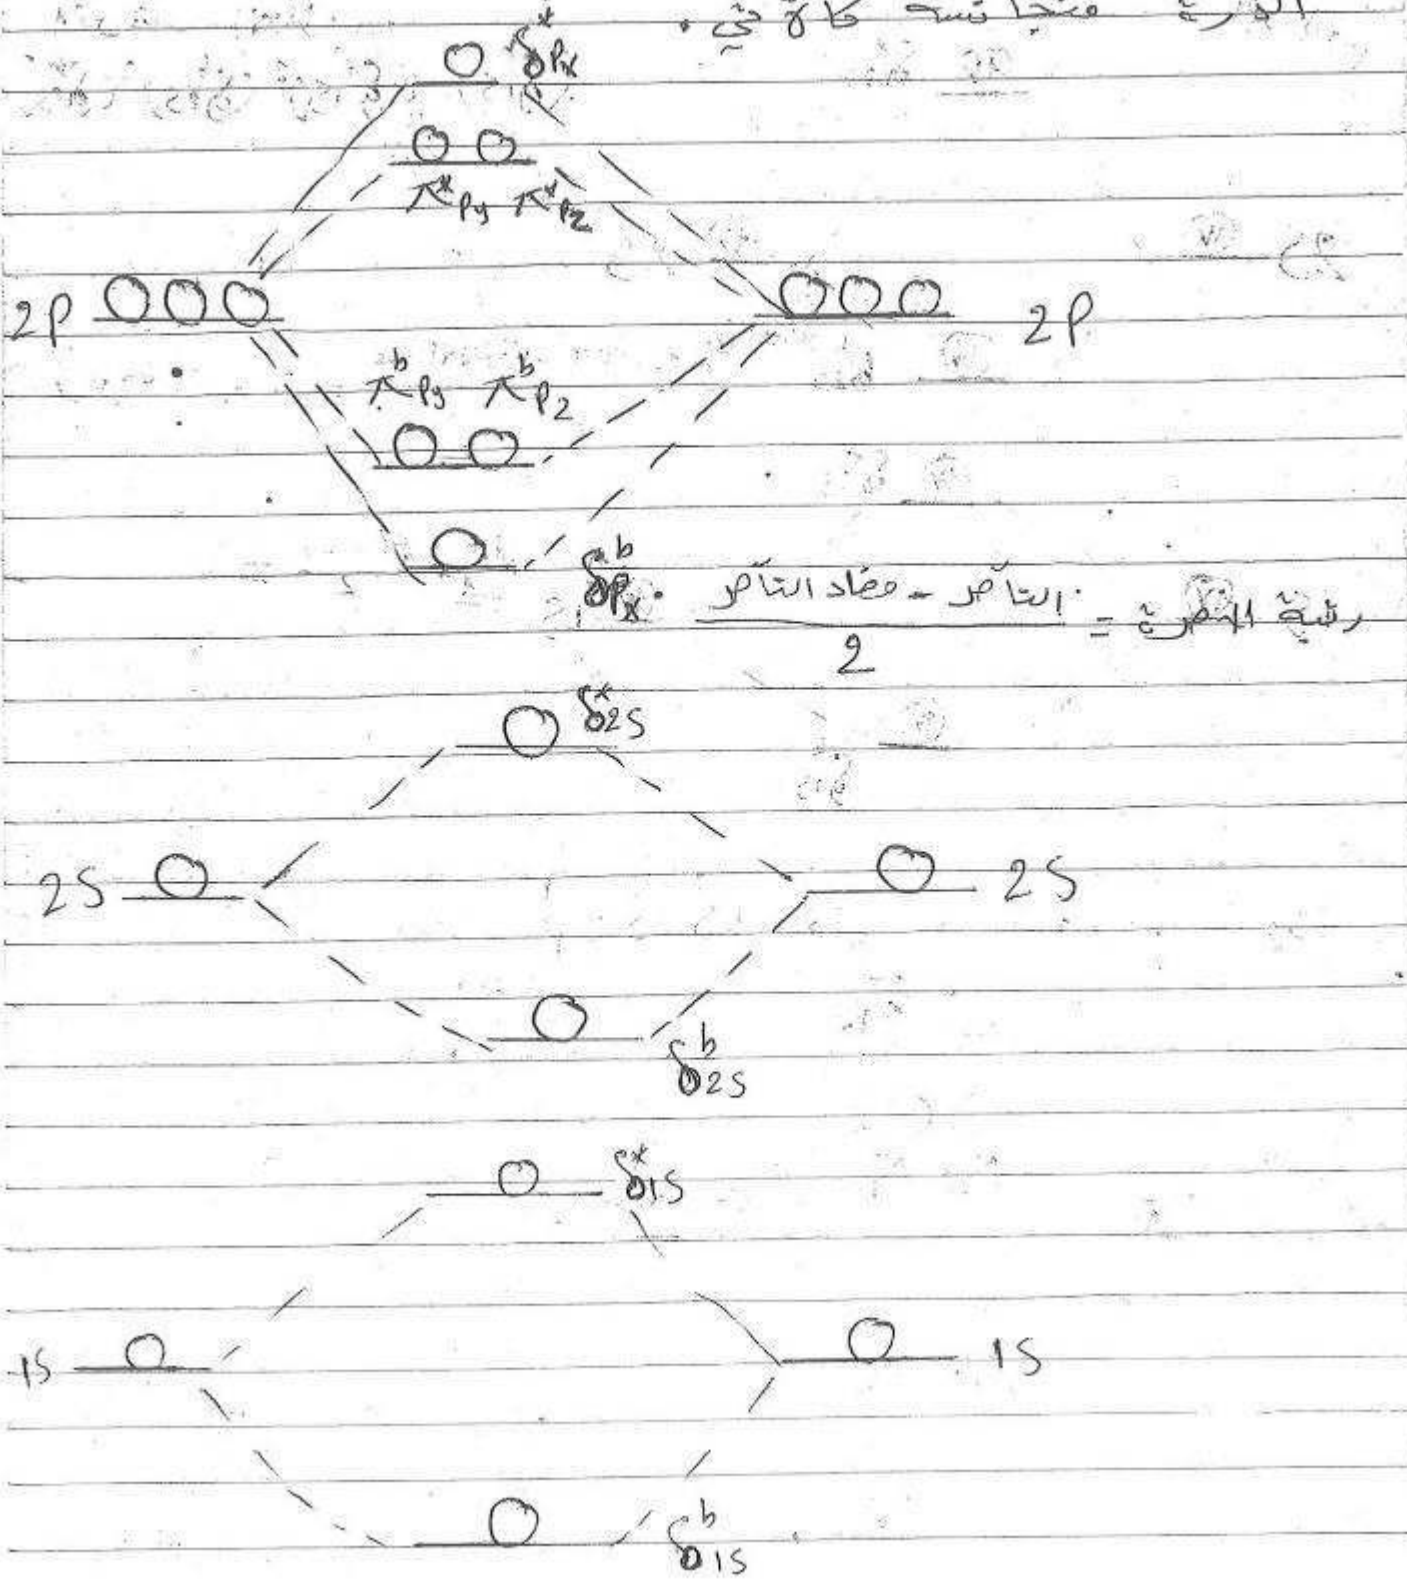 الذرة متجانسه كالآتي.
δ*Px
π*Py π*Pz
2P 2P
π^b Py π^b Pz
δ^b Px
رتبة الاصرة = التآصر - مضاد التآصر / 2
δ*2S
2S 2S
δ^b 2S
δ*1S
1S 1S
δ^b 1S